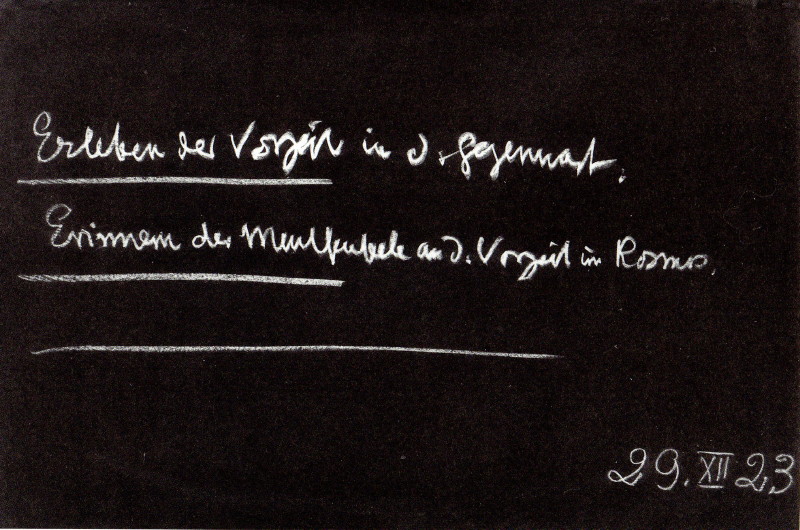 Erleben der Vorzeit in d. Gegenwart.
Erinnern der Menschenseele an d. Vorzeit im Kosmos.
29. XII 23